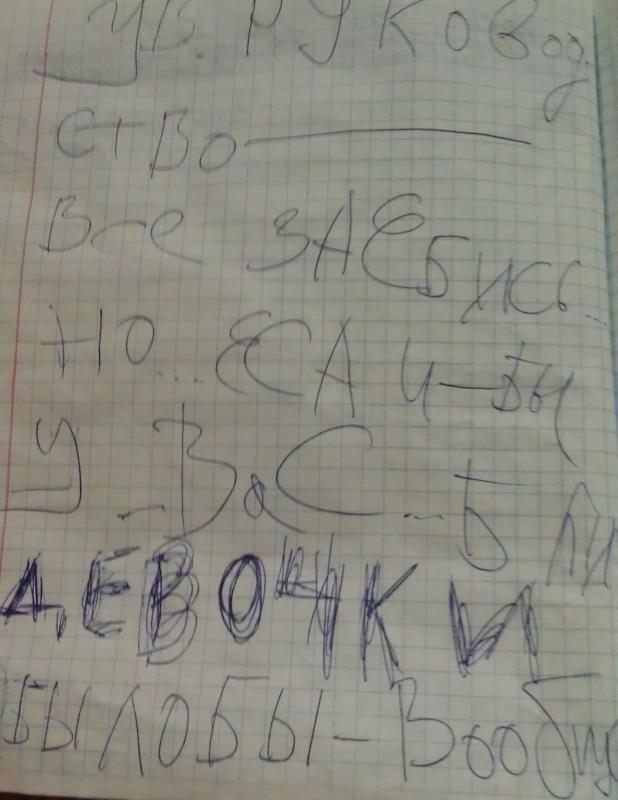 УВ. РУКОВОД.
СТВО
ВСЕ ЗАЕБИСЬ...
НО... ЕСЛИ-БЫ
У-ВАС...Б ЛИ
ДЕВОЧКИ
БЫЛОБЫ-ВООБЩ